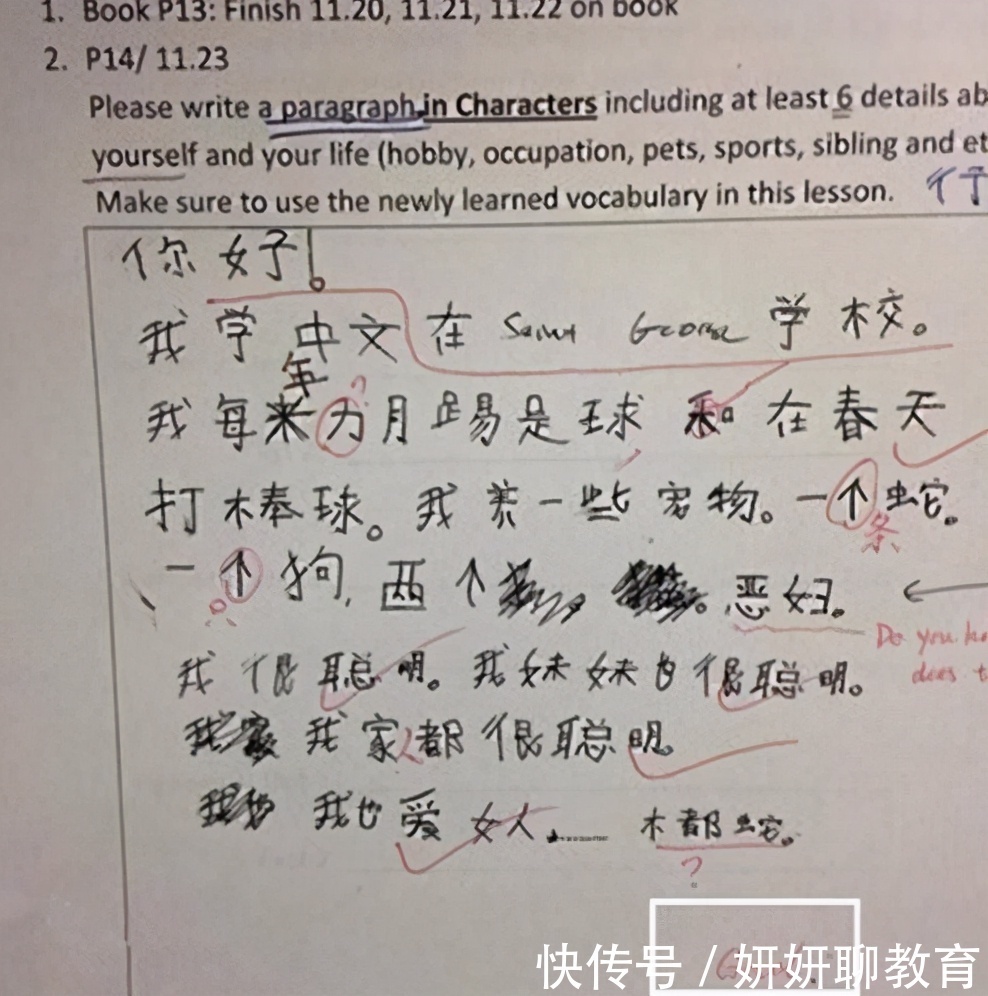 1. Book P13: Finish 11.20, 11.21, 11.22 on book
2. P14/ 11.23
Please write a paragraph in Characters including at least 6 details ab
yourself and your life (hobby, occupation, pets, sports, sibling and et
Make sure to use the newly learned vocabulary in this lesson.
你好!
我学中文在 Saint George 学校。
年
我每 月踢是球和在春天
打棒球。我养一些宠物。一个蛇。
条
一个狗,两个 恶妇。
Do you ha
does t
我很聪明。我妹妹也很聪明。
我家人都很聪明。
我也爱女人. 木都蛇。
?
快传号 / 妍妍聊教育